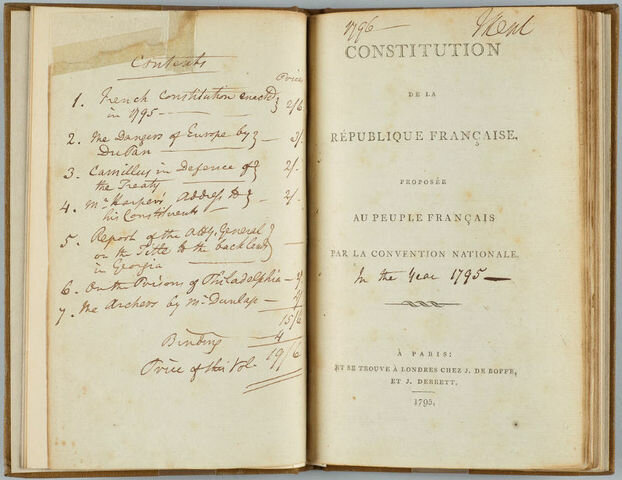 Contents
Price
1. French Constitution enacted } 2/6
in 1795
2. The Dangers of Europe by }
DuPan
3. Camillus in Defence of } 2/.
the Treaty
4. Mr Harper's Address to } 2/.
his Constituents
5. Report of the Atty. General }
on the Title to the back land
in Georgia
6. On the Prisons of Philadelphia
7. The Archers by Mr Dunlap
15/6
Binding 4
Price of this Vol. 19/6
1796
CONSTITUTION
DE LA
RÉPUBLIQUE FRANÇAISE,
PROPOSÉE
AU PEUPLE FRANÇAIS
PAR LA CONVENTION NATIONALE.
In the Year 1795
À PARIS:
ET SE TROUVE À LONDRES CHEZ J. DE BOFFE,
ET J. DEBRETT.
1795.